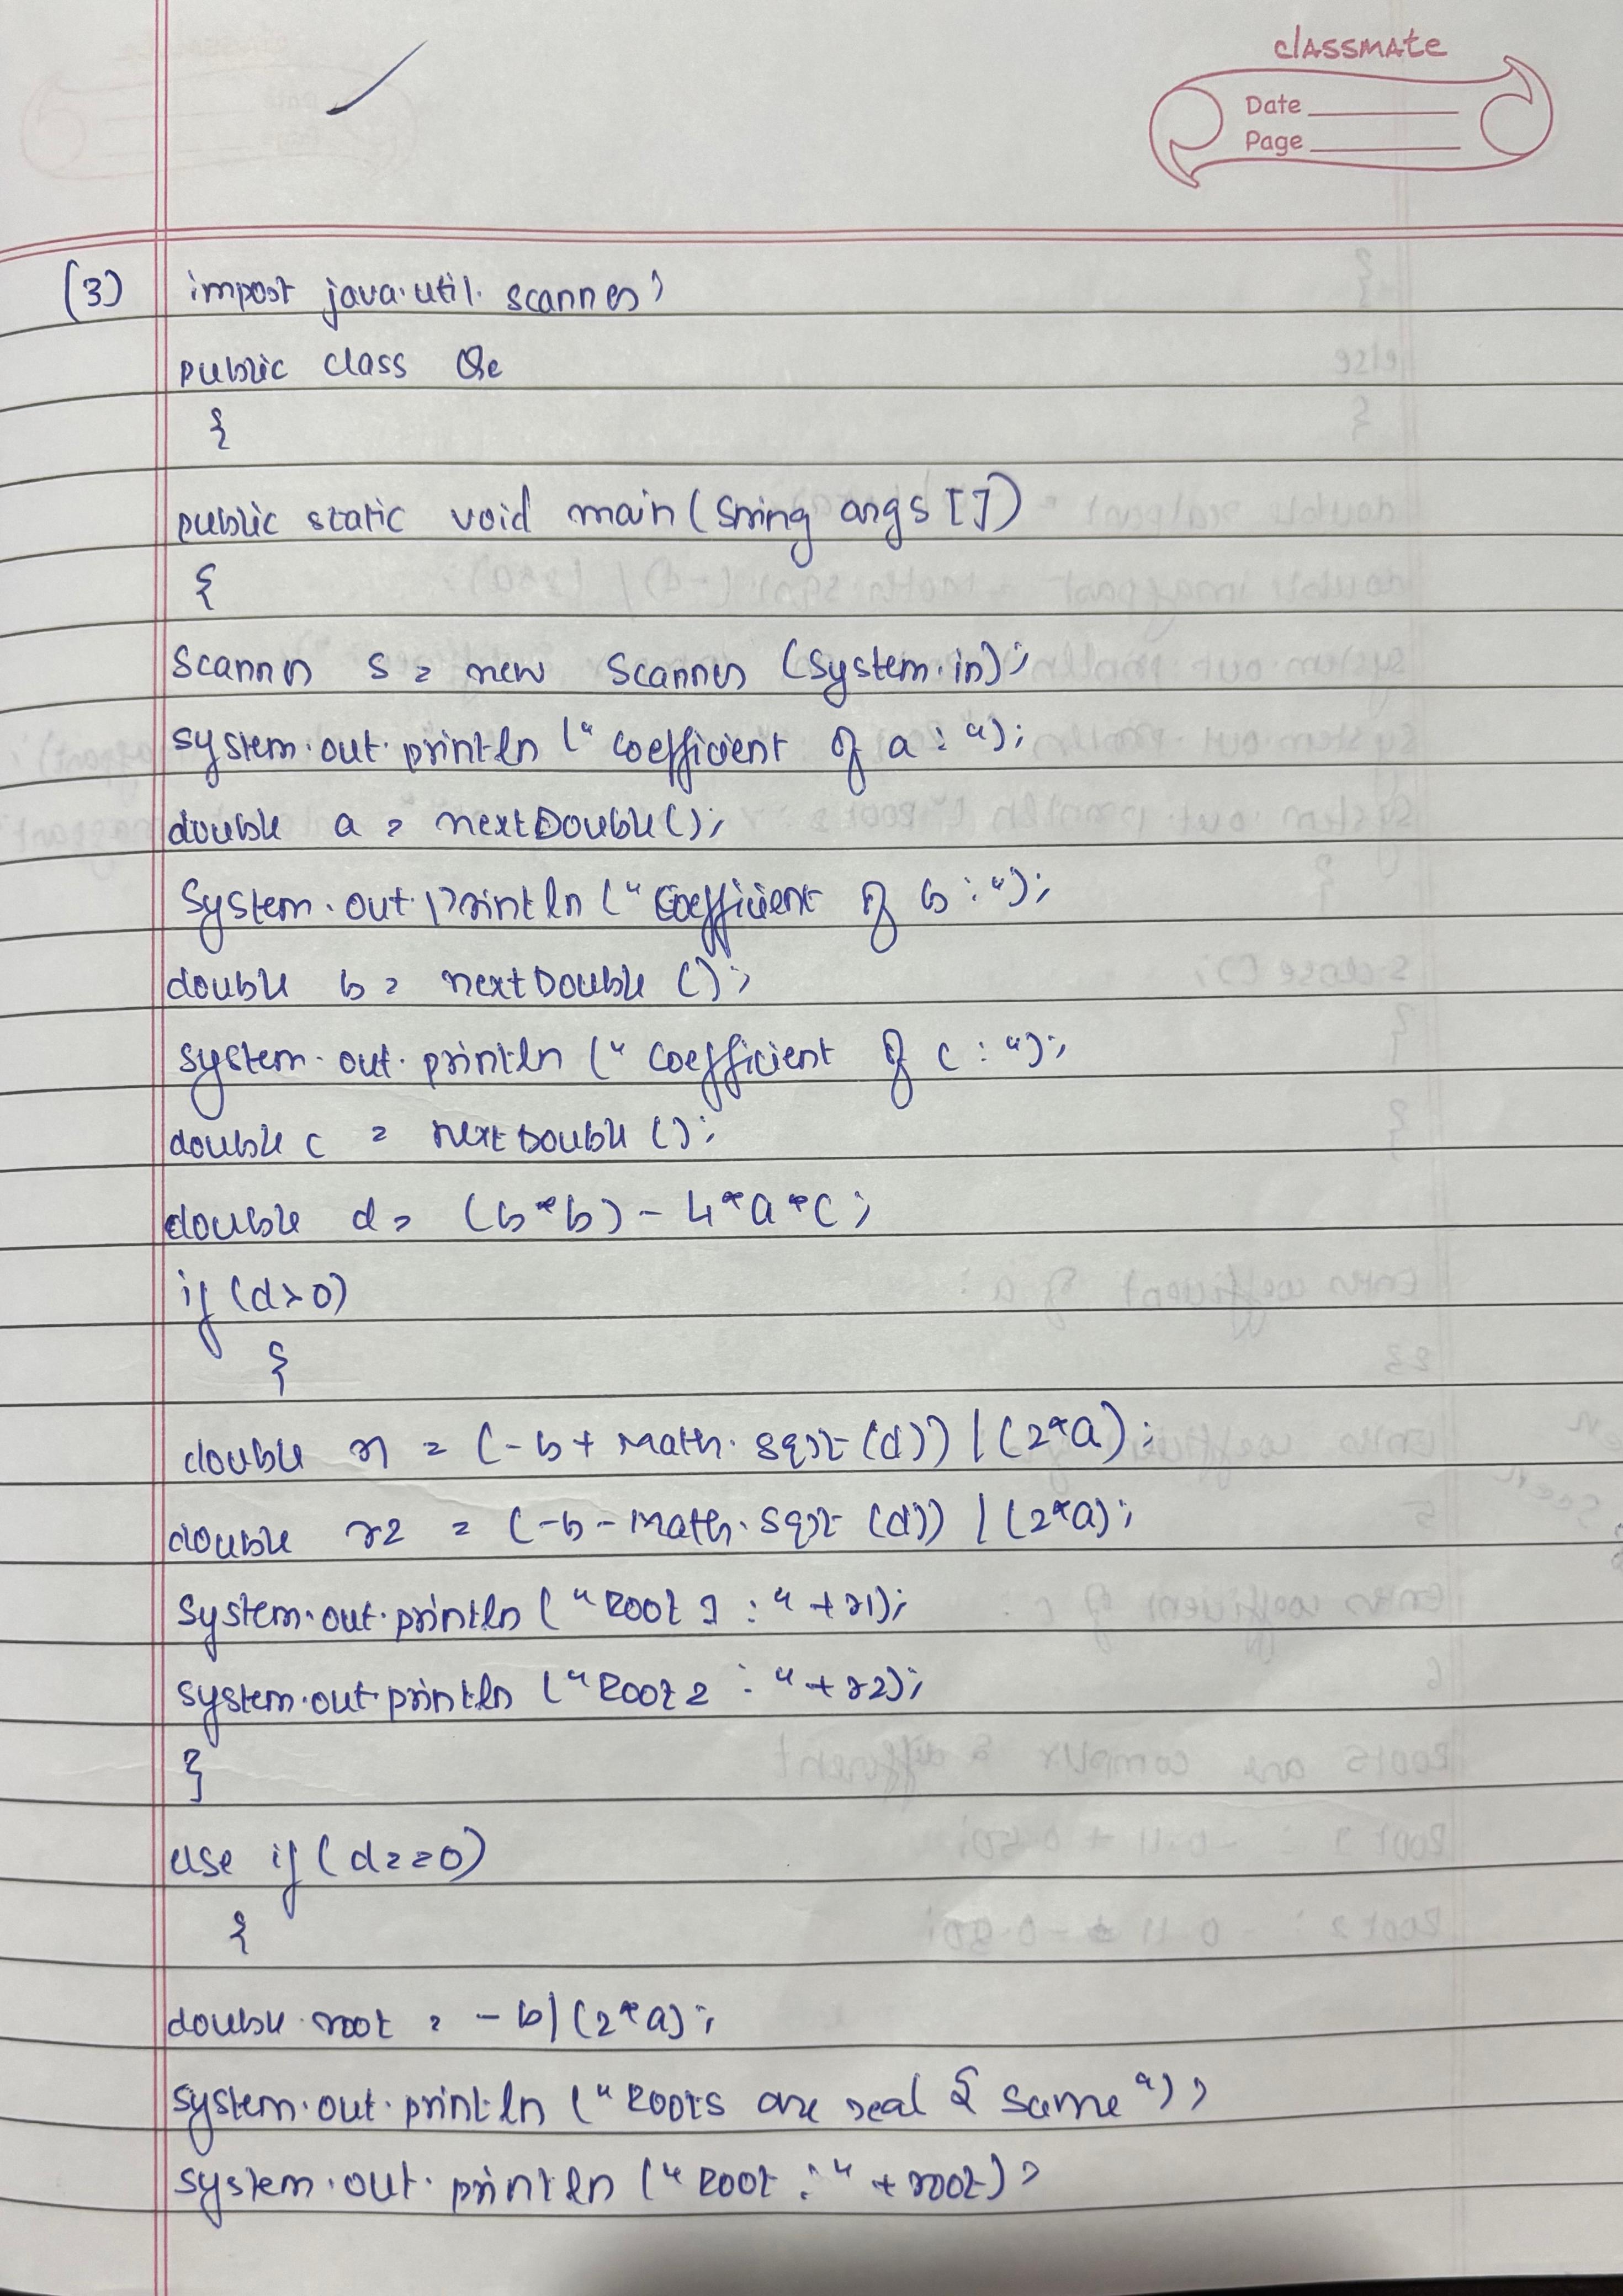 classmate
Date
Page
(3) import java.util.scanner;
public class Qe
{
public static void main(String args[])
{
Scanner s = new Scanner (System.in);
system.out.println ("coefficient of a : ");
double a = nextDouble();
System.out.println ("Coefficient of b : ");
double b = nextDouble ();
system.out.println ("coefficient of c : ");
double c = nextDouble ();
double d = (b*b) - 4*a*c;
if (d>0)
{
double r1 = (-b + Math.sqrt (d)) / (2*a);
double r2 = (-b - Math.sqrt (d)) / (2*a);
System.out.println ("Root 1 : " + r1);
system.out.println ("Root 2 : " + r2);
}
else if (d==0)
{
double root = -b/(2*a);
system.out.println ("Roots are real & same");
system.out.println ("Root : " + root);